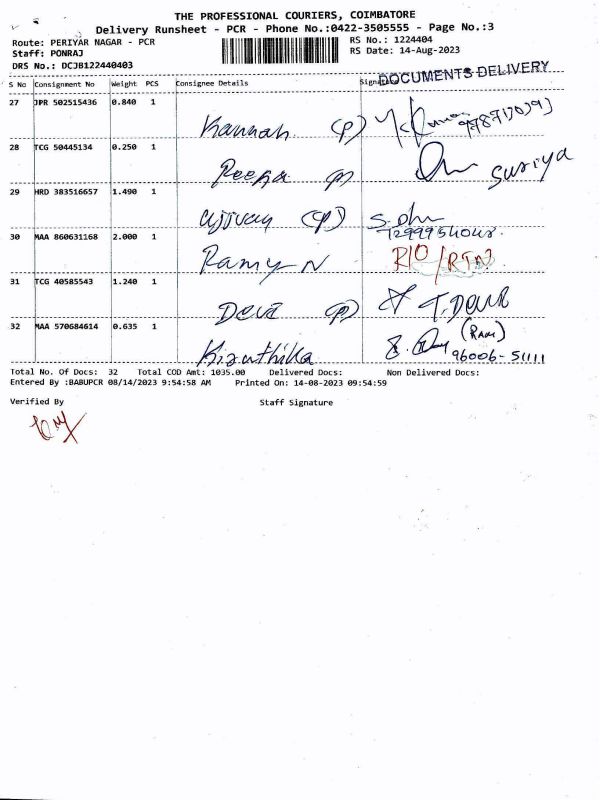 THE PROFESSIONAL COURIERS, COIMBATORE
Delivery Runsheet - PCR - Phone No.:0422-3505555 - Page No.:3
Route: PERIYAR NAGAR - PCR RS No.: 1224404
Staff: PONRAJ RS Date: 14-Aug-2023
DRS No.: DCJB122440403
DOCUMENTS DELIVERY
S No Consignment No Weight PCS Consignee Details Signature
27 JPR 502515436 0.840 1
Kannah (P)
28 TCG 50445134 0.250 1
Suriya
29 HRD 383516657 1.490 1
(P)
30 MAA 860631168 2.000 1
Ramy N R10/RTN
31 TCG 40585543 1.240 1
Deva (P) T. Deva
32 MAA 570684614 0.635 1
(Ram)
Kiruthika 96006-51111
Total No. Of Docs: 32 Total COD Amt: 1035.00 Delivered Docs: Non Delivered Docs:
Entered By :BABUPCR 08/14/2023 9:54:58 AM Printed On: 14-08-2023 09:54:59
Verified By Staff Signature